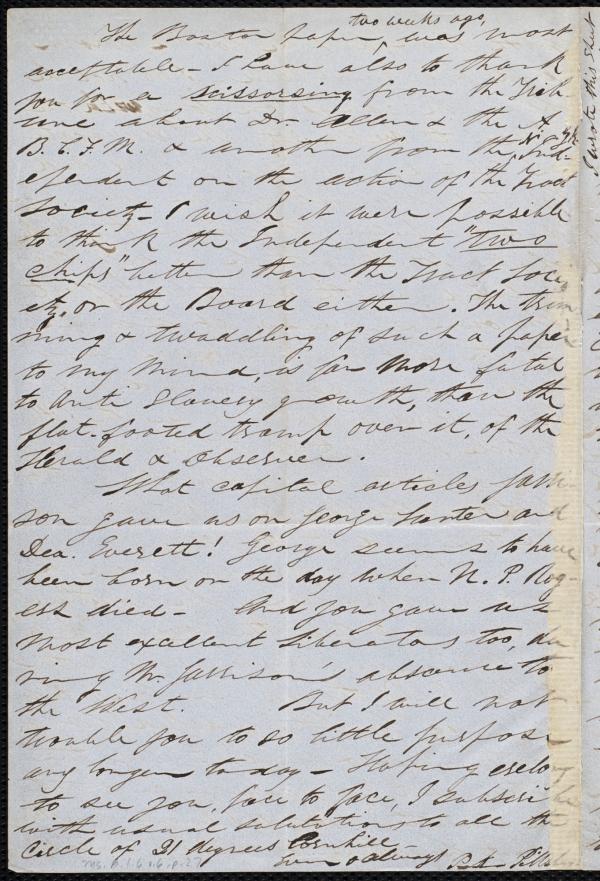 two weeks ago,
The Boston paper, was most
acceptable - I have also to thank
you for a scissorsing from the Trib
une about Dr. Allen & the A.
B. C. F. M. & another from the N. Y. Ind-
ependent on the action of the Tract
Society - I wish it were possible
to thank the Independent "two
chips" better than the Tract Soci-
ety, or the Board either. The trim
ming & twaddling of such a paper
to my mind, is far more fatal
to Anti Slavery growth, than the
flat-footed tramp over it, of the
Herald & Observer.
What capital articles Garri
son gave us on George and
Dea. Everett! George seems to have
been born on the day when N. P. Rog-
ers died - And you gave us
most excellent Liberators too, du
ring Mr. Garrison's absence to
the West. But I will not
trouble you to so little purpose
any longer to-day - Hoping erelong
to see you, face to face, I subscribe
with usual salutations to all the
circle of 21 degrees Cornhill
ever & always Parker Pillsbury
I wrote this sheet